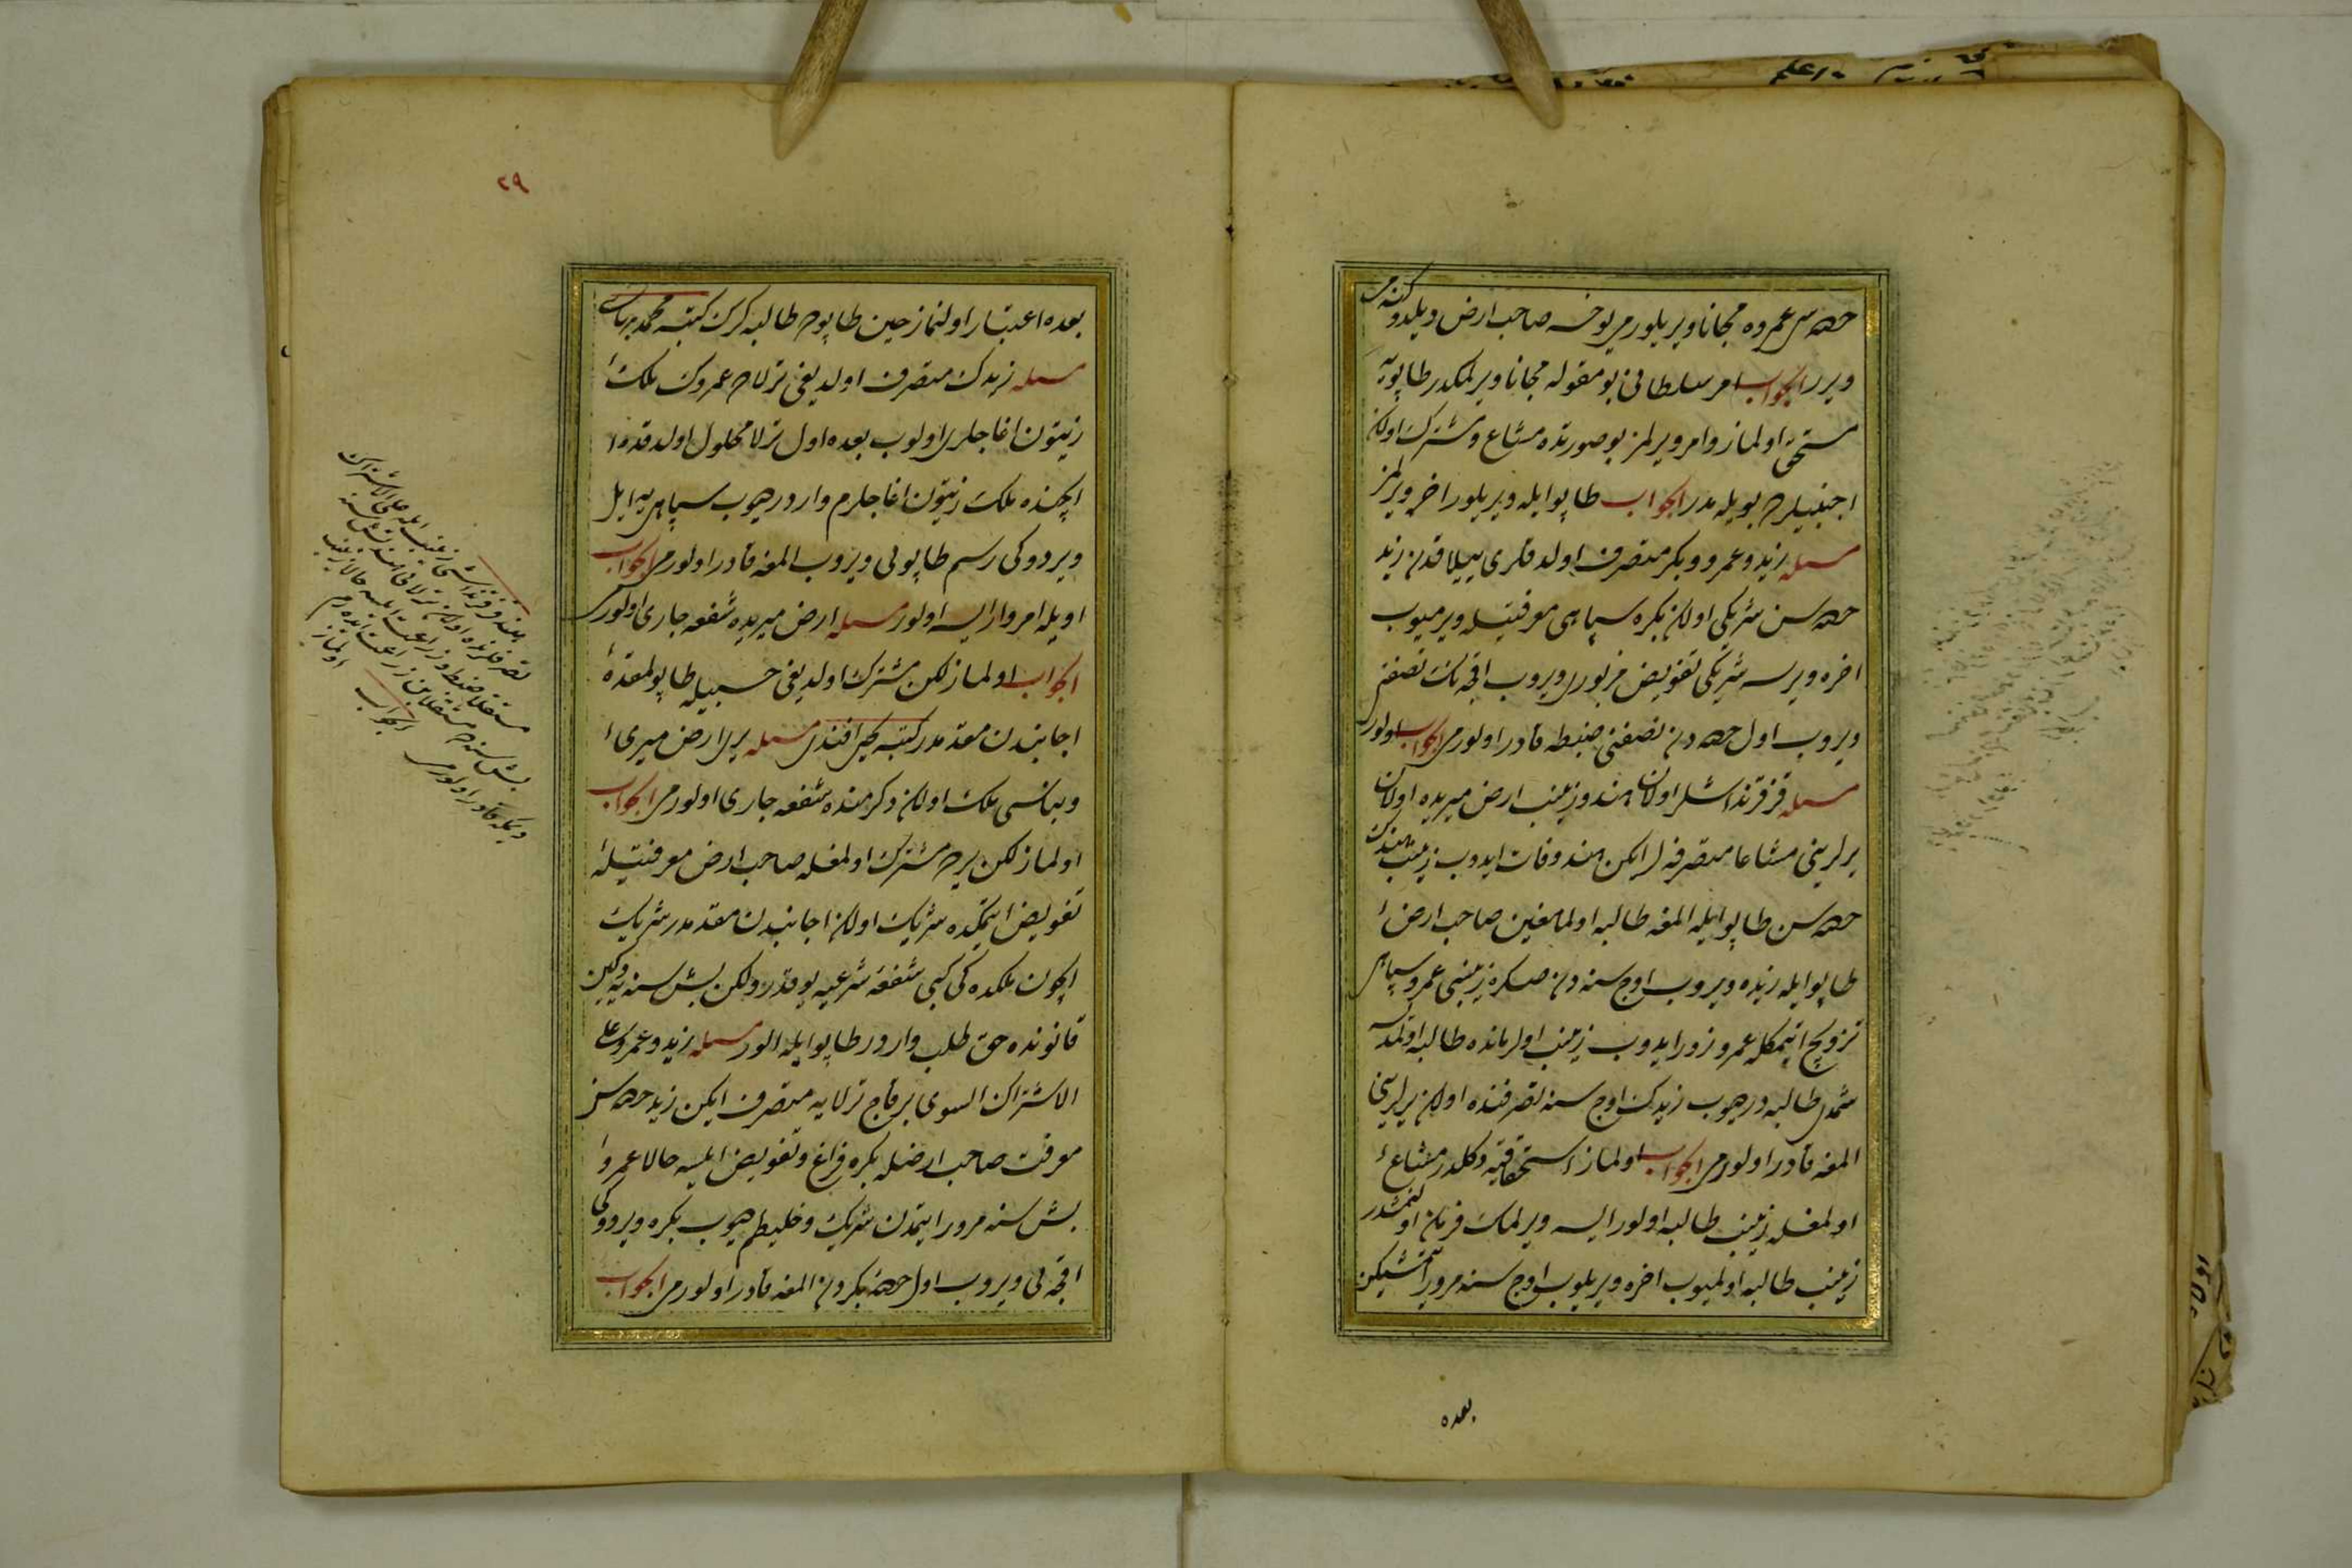 حصه‌سی عمروه مجانا ویریلورمی یوخسه صاحب ارض دیلدوکنه می
ویرر الجواب امر سلطانی بو مقوله مجانا ویرلمکدر طاپویه
مستحق اولماز وامر ویرلمز بو صورتده مشاع ومشترک اولان
اجنبیلرمی بویله‌در الجواب طاپو ایله ویریلور اخره ویرلمز
مسئله زید وعمرو وبکر متصرف اولدقلری ییلاقدن زید
حصه‌سن شریکی اولان بکره سپاهی معرفتیله ویرمیوب
اخره ویرسه شریکی تفویض مزبوری ویروب اقچه‌نک نصفن
ویروب اول حصه‌دن نصفنی ضبطه قادر اولورمی الجواب اولور
مسئله قزقرنداشلر اولان هند وزینب ارض میریده اولان
یرلرینی مشاعا متصرفه‌لر ایکن هند وفات ایدوب زینب هندک
حصه‌سن طاپو ایله المغه طالبه اولمامغین صاحب ارض
طاپو ایله زیده ویروب اوچ سنه‌دن صکره زینبی عمرو سپاهی
تزویج ایتمکله عمرو زور ایدوب زینب اول زمانده طالبه اولمدیسه
شمدی طالبه‌در دیوب زیدک اوچ سنه تصرفنده اولان یرلرینی
المغه قادر اولورمی الجواب اولماز استحقاقیه دکلدر مشاع
اولمغله زینب طالبه اولور ایسه ویرلمک فرمان اولنمشدر
زینب طالبه اولمیوب اخره ویریلوب اوچ سنه مرور ایتمشیکن
بعده
٢٩
بعده اعتبار اولنماز حین طاپوده طالبه کرک کتبه محمد بهائی
مسئله زیدک متصرف اولدیغی ترلاده عمروک ملک
زیتون اغاجلری اولوب بعده اول ترلا محلول اولدقده
ایچنده ملک زیتون اغاجلرم واردر دیوب سپاهی‌یه ایل
ویردوکی رسم طاپویی ویروب المغه قادر اولورمی الجواب
اویله امر وار ایسه اولور مسئله ارض میریده شفعه جاری اولورمی
الجواب اولماز لکن مشترک اولدیغی حسبیله طاپولمقده
اجانبدن مقدمدر کتبه یحیی افندی مسئله یری ارض میری
وبناسی ملک اولان دکرمنده شفعه جاری اولورمی الجواب
اولماز لکن یری مشترک اولمغله صاحب ارض معرفتیله
تفویض ایتمکده شریک اولان اجانبدن مقدمدر شریک
ایچون ملکده کی کبی شفعهٔ شرعیه یوقدر ولکن بش سنه‌یه دکین
قانونده حق طلب واردر طاپو ایله الور مسئله زید وعمرو علی
الاشتراک السوی بر قاج ترلایه متصرف ایکن زید حصه‌سن
معرفت صاحب ارضله بکره فراغ وتفویض ایلسه حالا عمرو
بش سنه مرور ایتمدن شریک وخلیطم دیوب بکره ویردوکی
اقچه‌یی ویروب اول حصه‌ٔ بکردن المغه قادر اولورمی الجواب
هند قزقرنداشی زینب ایله علی الاشتراک
تصرفلرنده اولان ترلانی هند بش سنه
مستقلا ضبط وزراعت ایلسه حالا زینب
بش سنه‌در مستقلا بن زراعت ایدرم
دیمکه قادر اولورمی الجواب اولماز